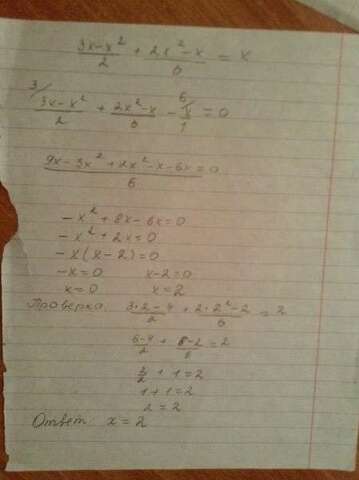 3x-x²/2 + 2x²-x/6 = x
3/ 3x-x²/2 + 2x²-x/6 - 6/ x/1 = 0
9x-3x²+2x²-x-6x/6 = 0
-x²+8x-6x=0
-x²+2x=0
-x(x-2)=0
-x=0 x-2=0
x=0 x=2
Проверка: 3·2-4/2 + 2·2²-2/6 = 2
6-4/2 + 8-2/6 = 2
2/2 + 1 = 2
1+1=2
2=2
Ответ: x=2